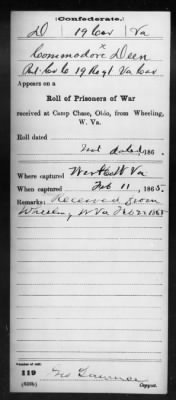 (Confederate.)
D 19 Cav Va
x
Commodore Deen
Pvt. Co D 19 Regt Va Cav
Appears on a
Roll of Prisoners of War
received at Camp Chase, Ohio, from Wheeling,
W. Va.
Roll dated
Not dated, 186 .
Where captured W Va
When captured Feb 11, 1865.
Remarks: Received from
Wheeling W Va 1865
Number of roll:
119
(639b) Copyist.